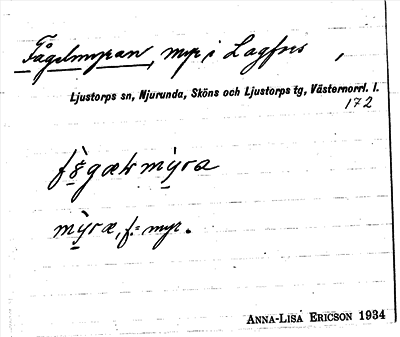 Fågelmyran, myr i Lagfors,
Ljustorps sn, Njurunda, Sköns och Ljustorps tg, Västernorrl. l.
172
mỳra, f. = myr.
ANNA-LISA ERICSON 1934